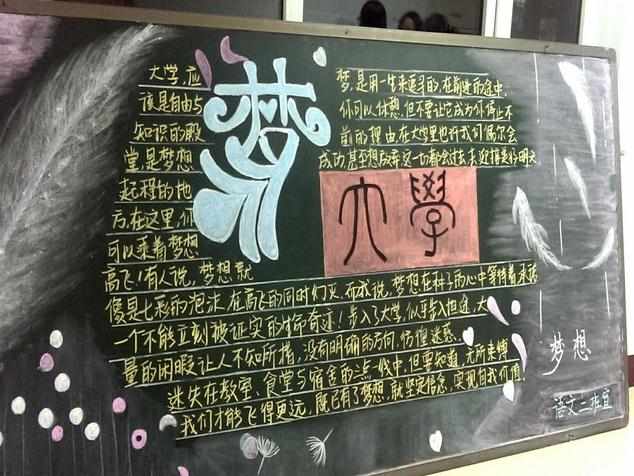 大学,应
该是自由与
知识的殿
堂是梦想
起程的地
方在这里,你
可以乘着梦想
高飞!有人说,梦想就
像是七彩的泡沫,在高飞的同时幻灭.而我说,梦想在种子的心中等待着承接
一个不能立刻被证实的生命奇迹!步入了大学,似乎步入坦途,大
量的闲暇让人不知所措,没有明确的方向,彷徨迷惑.
迷失在教室、食堂与宿舍的三点一线中,但要知道,无所羁缚
我们才能飞得更远,既已有了梦想,就坚定信念,实现自我价值.
梦
梦,是用一生来追寻的,在前进的途中,
你可以休憩,但不要让它成为你停止不
前的理由.在大学里也许我们偶尔会
成功,甚至想放弃,这一切都会过去,来迎接美好明天
大學
梦想
语文二班宣